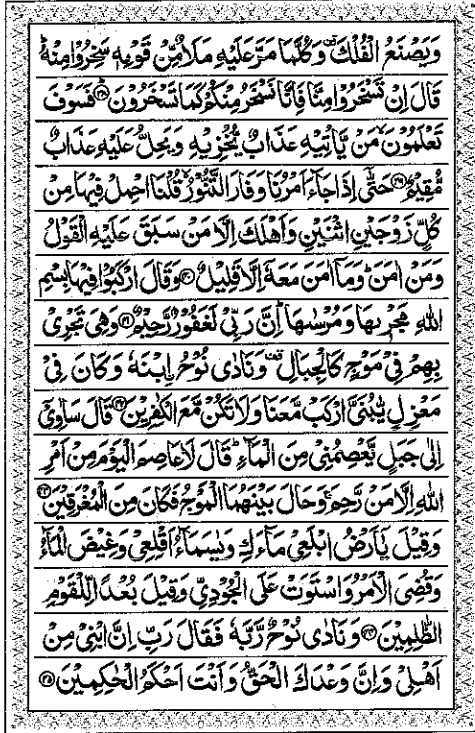 وَيَصْنَعُ الْفُلْكَ ۣ وَكُلَّمَا مَرَّ عَلَيْهِ مَلَاٌ مِّنْ قَوْمِهٖ سَخِرُوْا مِنْهُ ؕ
قَالَ اِنْ تَسْخَرُوْا مِنَّا فَاِنَّا نَسْخَرُ مِنْكُمْ كَمَا تَسْخَرُوْنَ ۝۳۸ فَسَوْفَ
تَعْلَمُوْنَ ۙ مَنْ يَّاْتِيْهِ عَذَابٌ يُّخْزِيْهِ وَيَحِلُّ عَلَيْهِ عَذَابٌ
مُّقِيْمٌ ۝۳۹ حَتّٰۤى اِذَا جَآءَ اَمْرُنَا وَفَارَ التَّنُّوْرُ ۙ قُلْنَا احْمِلْ فِيْهَا مِنْ
كُلٍّ زَوْجَيْنِ اثْنَيْنِ وَاَهْلَكَ اِلَّا مَنْ سَبَقَ عَلَيْهِ الْقَوْلُ
وَمَنْ اٰمَنَ ؕ وَمَاۤ اٰمَنَ مَعَهٗۤ اِلَّا قَلِيْلٌ ۝۴۰ وَقَالَ ارْكَبُوْا فِيْهَا بِسْمِ
اللّٰهِ مَجْرٖىهَا وَمُرْسٰىهَا ؕ اِنَّ رَبِّيْ لَغَفُوْرٌ رَّحِيْمٌ ۝۴۱ وَهِيَ تَجْرِيْ
بِهِمْ فِيْ مَوْجٍ كَالْجِبَالِ ۣ وَنَادٰى نُوْحُ ابْنَهٗ وَكَانَ فِيْ
مَعْزِلٍ يّٰبُنَيَّ ارْكَبْ مَّعَنَا وَلَا تَكُنْ مَّعَ الْكٰفِرِيْنَ ۝۴۲ قَالَ سَاٰوِيْۤ
اِلٰى جَبَلٍ يَّعْصِمُنِيْ مِنَ الْمَآءِ ؕ قَالَ لَا عَاصِمَ الْيَوْمَ مِنْ اَمْرِ
اللّٰهِ اِلَّا مَنْ رَّحِمَ ۚ وَحَالَ بَيْنَهُمَا الْمَوْجُ فَكَانَ مِنَ الْمُغْرَقِيْنَ ۝۴۳
وَقِيْلَ يٰۤاَرْضُ ابْلَعِيْ مَآءَكِ وَيٰسَمَآءُ اَقْلِعِيْ وَغِيْضَ الْمَآءُ
وَقُضِيَ الْاَمْرُ وَاسْتَوَتْ عَلَى الْجُوْدِيِّ وَقِيْلَ بُعْدًا لِّلْقَوْمِ
الظّٰلِمِيْنَ ۝۴۴ وَنَادٰى نُوْحٌ رَّبَّهٗ فَقَالَ رَبِّ اِنَّ ابْنِيْ مِنْ
اَهْلِيْ وَاِنَّ وَعْدَكَ الْحَقُّ وَاَنْتَ اَحْكَمُ الْحٰكِمِيْنَ ۝۴۵